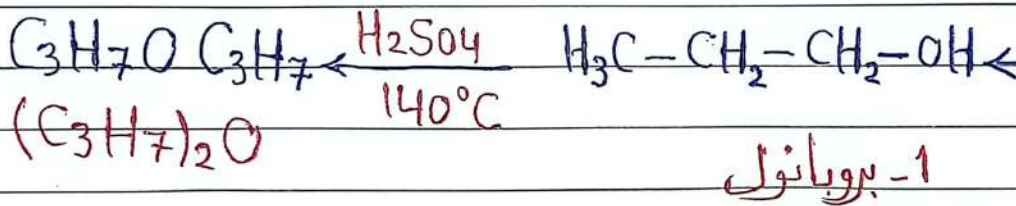 C₃H₇O C₃H₇ ← H₂SO₄ H₃C–CH₂–CH₂–OH ←
140°C
(C₃H₇)₂O
1- بروبانول